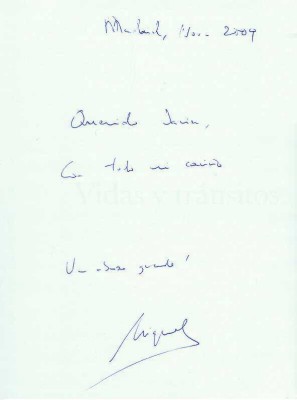 Madrid, Nov. 2009
Querido Javier,
Con todo mi cariño
Vidas y tránsitos
Un abrazo grande!
Miguel